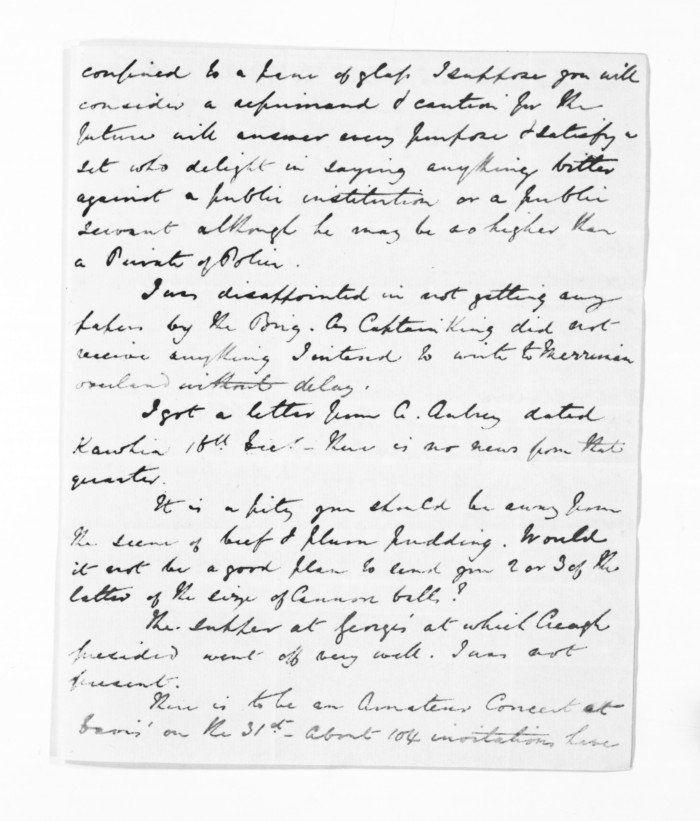 confined to a pane of glass I suppose you will
consider a reprimand & caution for the
future will answer every purpose & satisfy a
set who delight in saying anything bitter
against a public institution or a public
servant although he may be no higher than
a Private of Police.
I was disappointed in not getting any
papers by the Brig. As Captain King did not
receive anything I intend to write to Merriman
overland without delay.
I got a letter from C. Aubrey dated
Kawhia 18th Decr - there is no news from that
quarter.
It is a pity you should be away from
the scene of beef & plum pudding. Would
it not be a good plan to send you 2 or 3 of the
latter of the size of Cannon balls?
The supper at George's at which Creagh
presided went off very well. I was not
present.
There is to be an Amateur Concert at
Davis' on the 31st - about 104 invitations have